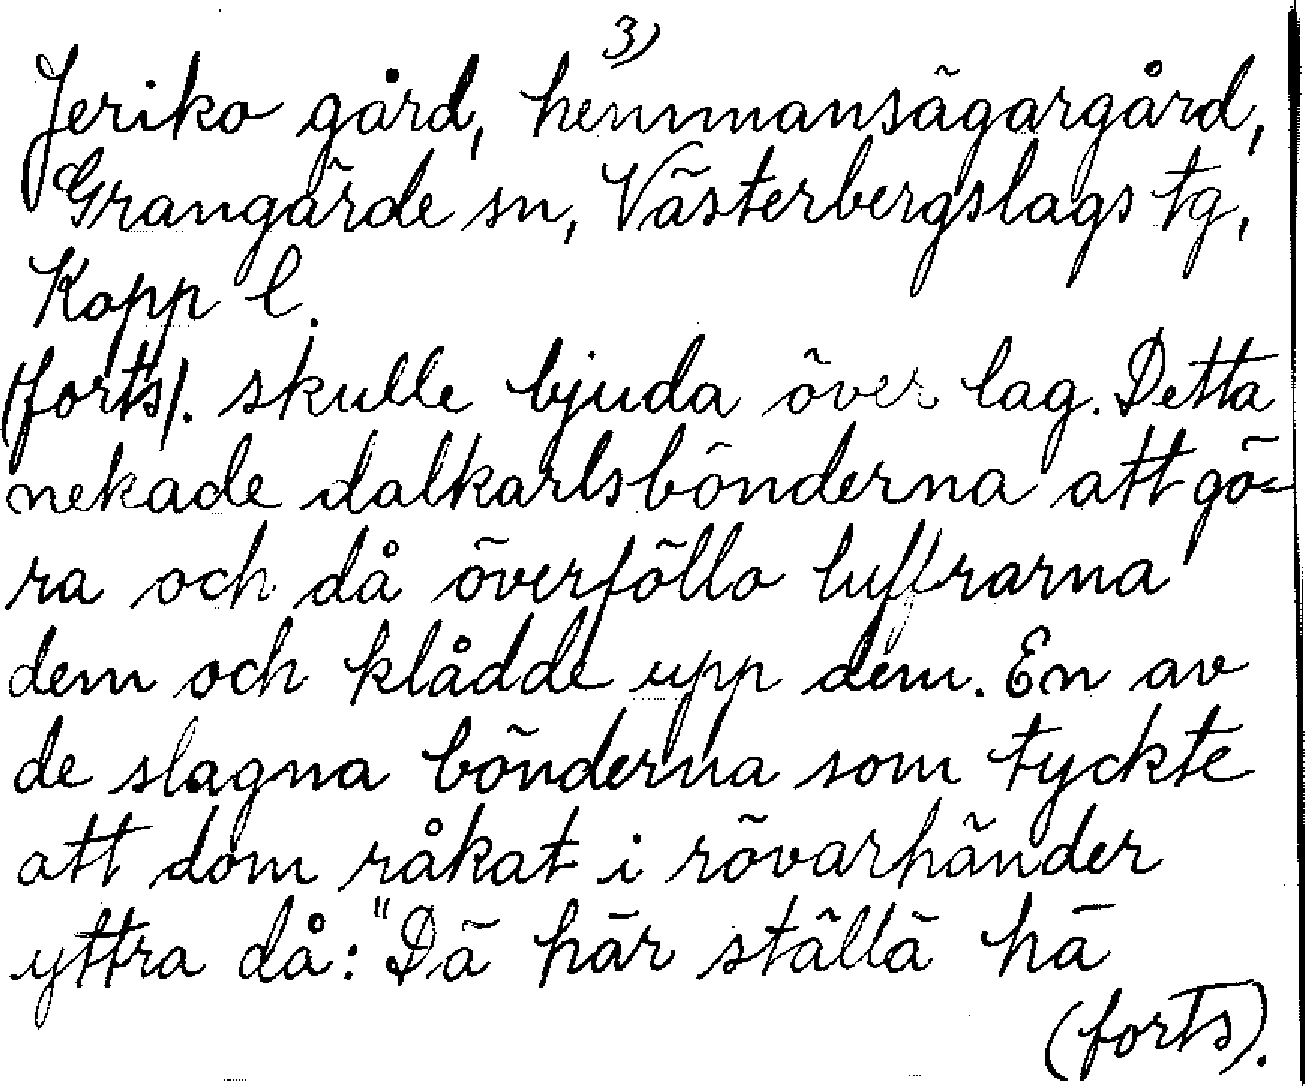 3)
Jeriko gård, hemmansägargård,
Grangärde sn, Västerbergslags tg,
Kopp l.
(forts). skulle bjuda över lag. Detta
nekade dalkarlsbönderna att gö-
ra och då överföllo luffrarna
dem och klådde upp dem. En av
de slagna bönderna som tyckte
att dom råkat i rövarhänder
yttra då: "Dä här ställä hä
(forts).